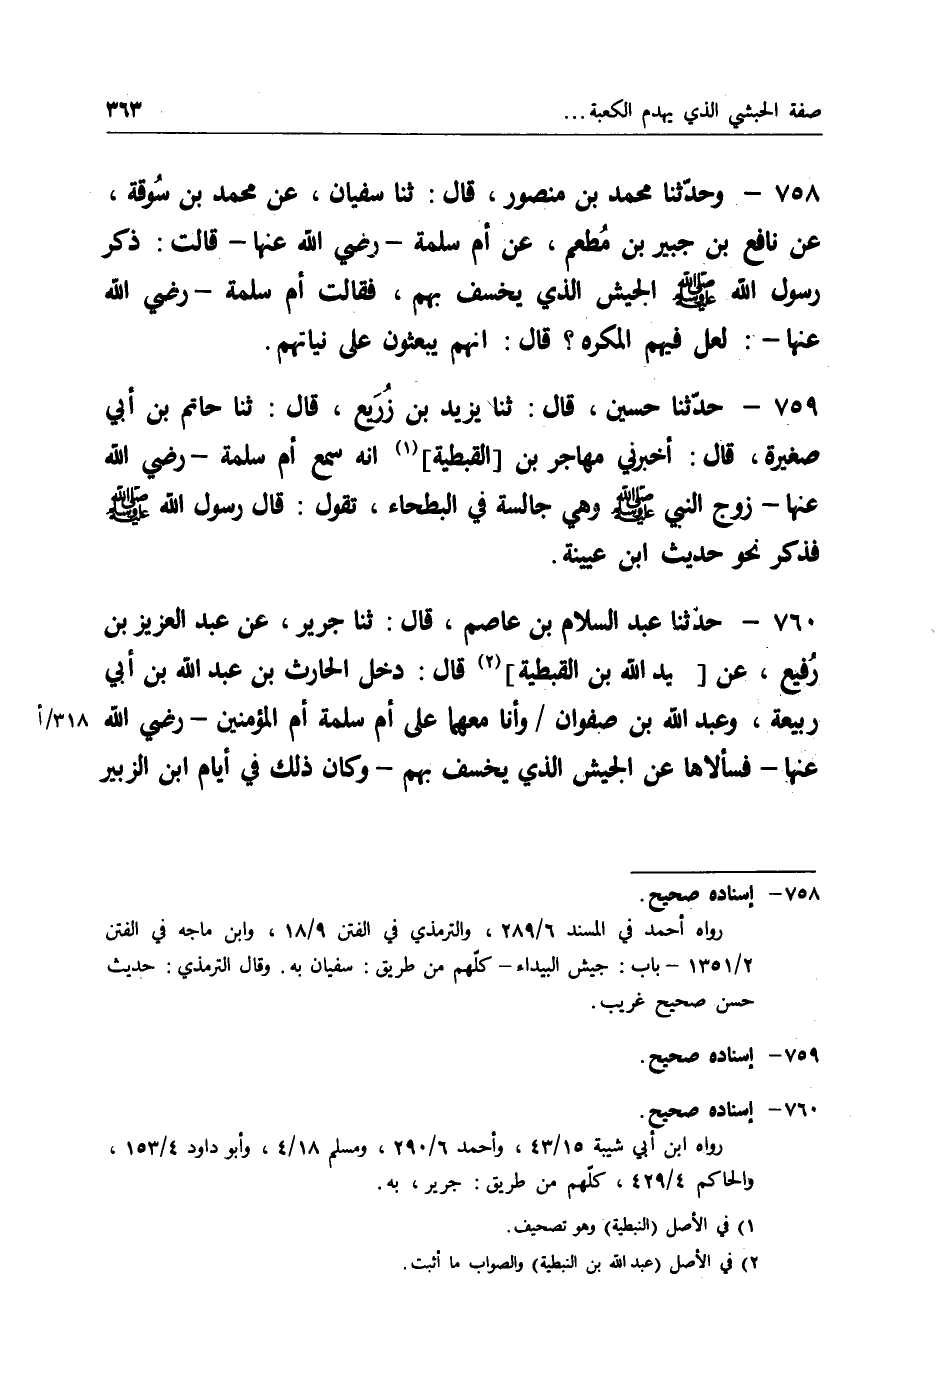 صفة الحبشي الذي يهدم الكعبة ... ٣٦٣
٧٥٨ – وحدّثنا محمد بن منصور ، قال : ثنا سفيان ، عن محمد بن سُوقة ،
عن نافع بن جبير بن مُطعم ، عن أم سلمة – رضي الله عنها – قالت : ذكر
رسول الله ﷺ الجيش الذي يخسف بهم ، فقالت أم سلمة – رضي الله
عنها – : لعل فيهم المكره ؟ قال : انهم يبعثون على نياتهم .
٧٥٩ – حدّثنا حسين ، قال : ثنا يزيد بن زُرَيع ، قال : ثنا حاتم بن أبي
صغيرة ، قال : أخبرني مهاجر بن [القبطية](١) انه سمع أم سلمة – رضي الله
عنها – زوج النبي ﷺ وهي جالسة في البطحاء ، تقول : قال رسول الله ﷺ
فذكر نحو حديث ابن عيينة .
٧٦٠ – حدّثنا عبد السلام بن عاصم ، قال : ثنا جرير ، عن عبد العزيز بن
رُفيع ، عن [ يد الله بن القبطية](٢) قال : دخل الحارث بن عبد الله بن أبي
ربيعة ، وعبد الله بن صفوان / وأنا معهما على أم سلمة أم المؤمنين – رضي الله ٣١٨/أ
عنها – فسألاها عن الجيش الذي يخسف بهم – وكان ذلك في أيام ابن الزبير
٧٥٨ – إسناده صحيح .
رواه أحمد في المسند ٢٨٩/٦ ، والترمذي في الفتن ١٨/٩ ، وابن ماجه في الفتن
١٣٥١/٢ – باب : جيش البيداء – كلّهم من طريق : سفيان به . وقال الترمذي : حديث
حسن صحيح غريب .
٧٥٩ – إسناده صحيح .
٧٦٠ – إسناده صحيح .
رواه ابن أبي شيبة ٤٣/١٥ ، وأحمد ٢٩٠/٦ ، ومسلم ٤/١٨ ، وأبو داود ١٥٣/٤ ،
والحاكم ٤٢٩/٤ ، كلّهم من طريق : جرير ، به .
١) في الأصل (النبطية) وهو تصحيف .
٢) في الأصل (عبد الله بن النبطية) والصواب ما أثبت .